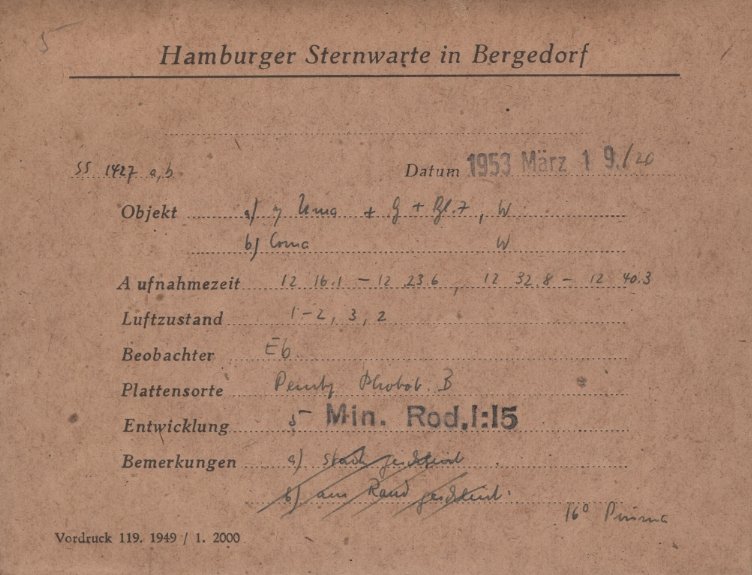 5
Hamburger Sternwarte in Bergedorf
SS 1427 a,b Datum 1953 März 1 9./20
Objekt a) γ Uma + G + Bl. 7, W
b) Coma W
Aufnahmezeit 12 16.1 – 12 23.6, 12 32.8 – 12 40.3
Luftzustand 1-2, 3, 2
Beobachter Eb.
Plattensorte Perutz Phobot. B
Entwicklung 5 Min. Rod. 1:15
Bemerkungen a) stark geschleiert
b) am Rand geschleiert.
16° Prisma
Vordruck 119. 1949 / 1. 2000